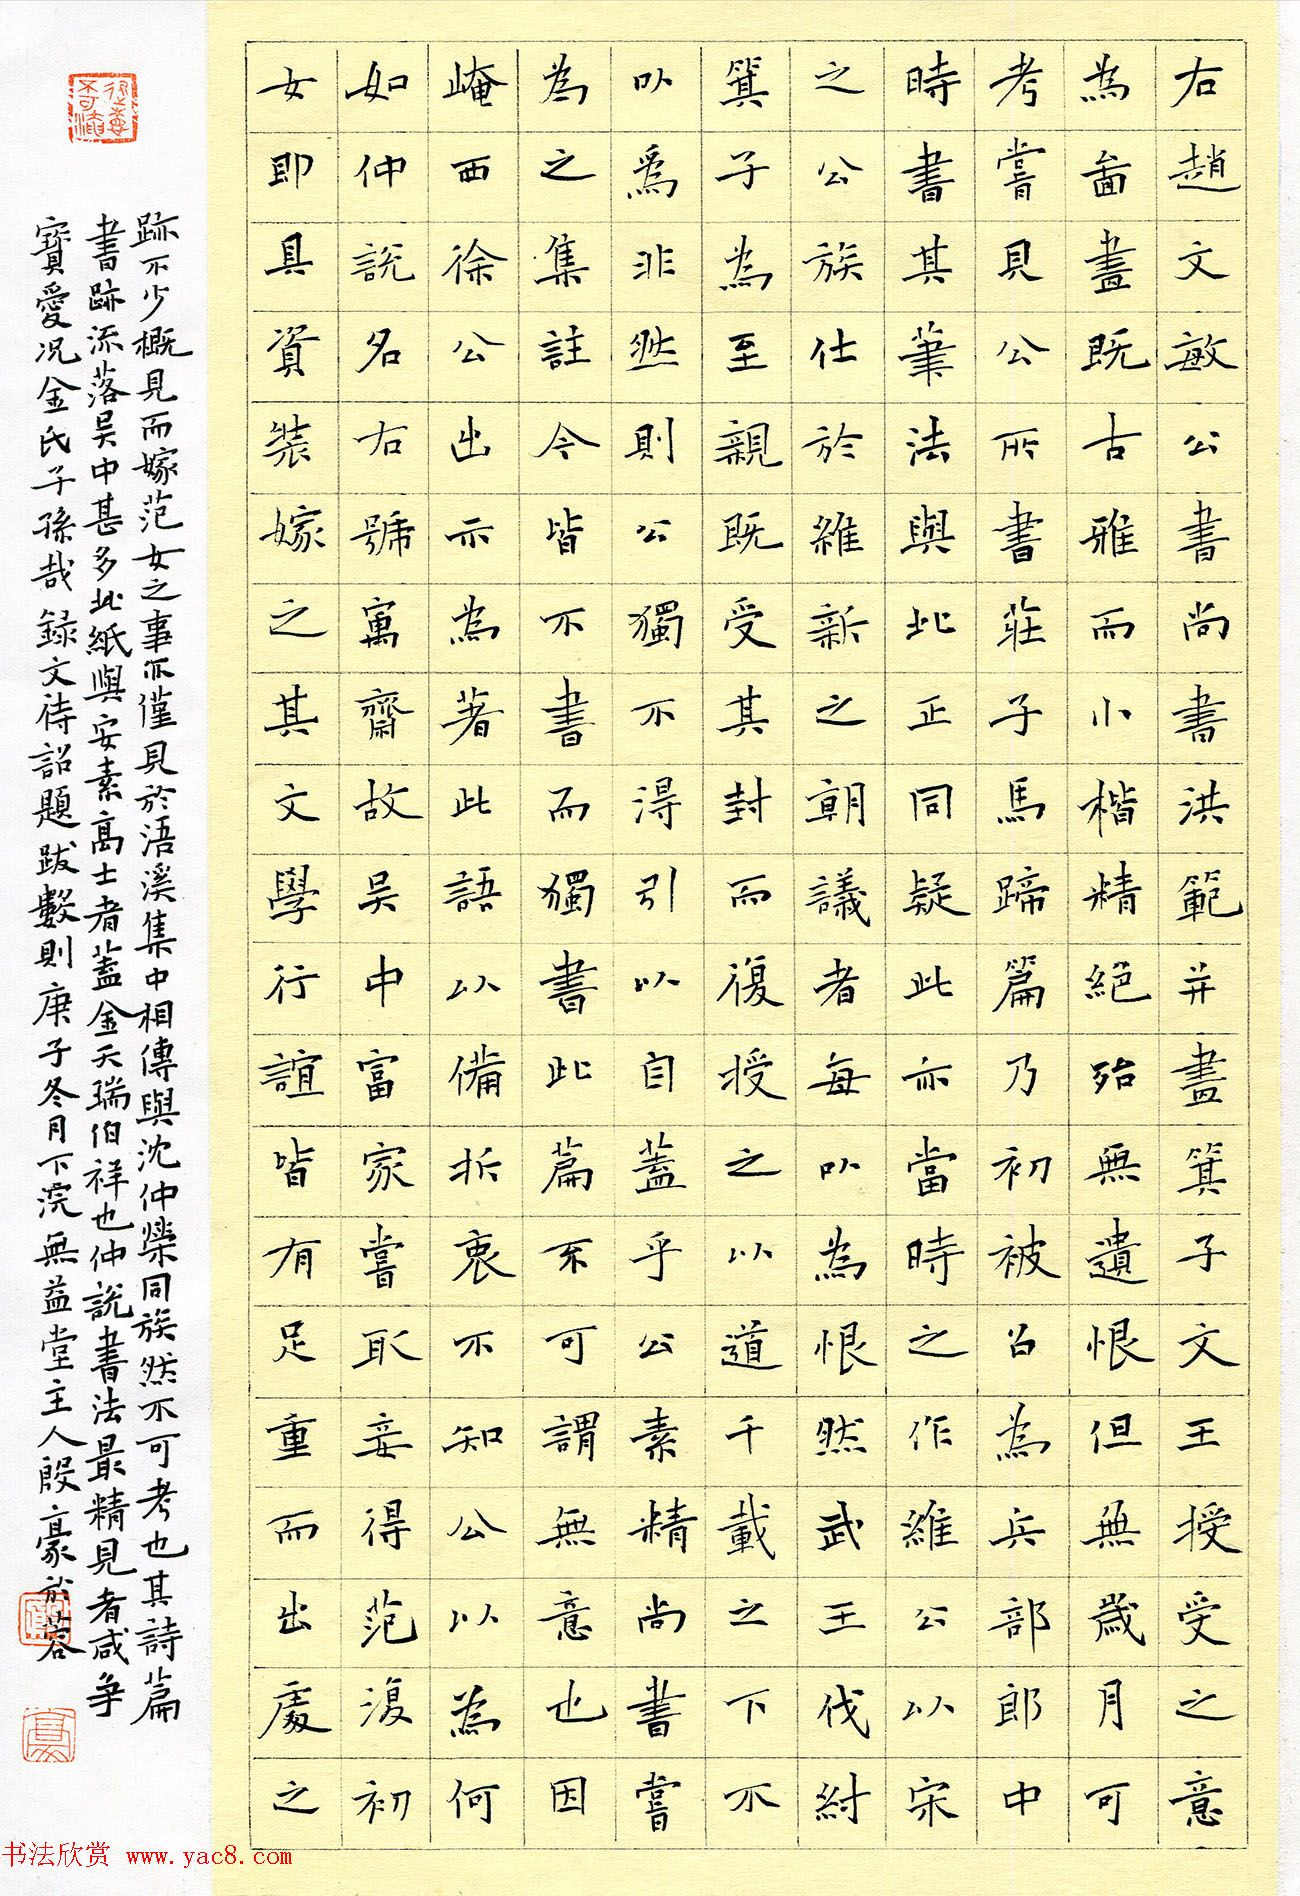 右趙文敏公書尚書洪範并畫箕子文王授受之意
為啚畫既古雅而小楷精絕殆無遺恨但無歲月可
考嘗見公所書莊子馬蹄篇乃初被召為兵部郎中
時書其筆法與此正同疑此亦當時之作維公以宋
之公族仕於維新之朝議者每以為恨然武王伐紂
箕子為至親既受其封而復授之以道千載之下不
以爲非然則公獨不得引以自蓋乎公素精尚書嘗
為之集註今皆不書而獨書此篇不可謂無意也因
崦西徐公出示為著此語以備折衷不知公以為何
如仲說名右號寓齋故吴中富家嘗取妾得范復初
女即具資裝嫁之其文學行誼皆有足重而出處之
跡不少概見而嫁范女之事亦僅見於浯溪集中相傳與沈仲榮同族然不可考也其詩篇
書跡流落吴中甚多此紙與安素高士者蓋金天瑞伯祥也仲說書法最精見者咸争
寶愛况金氏子孫哉録文待詔題跋數則庚子冬月下浣無益堂主人殷豪於蓉
书法欣赏 www.yac8.com